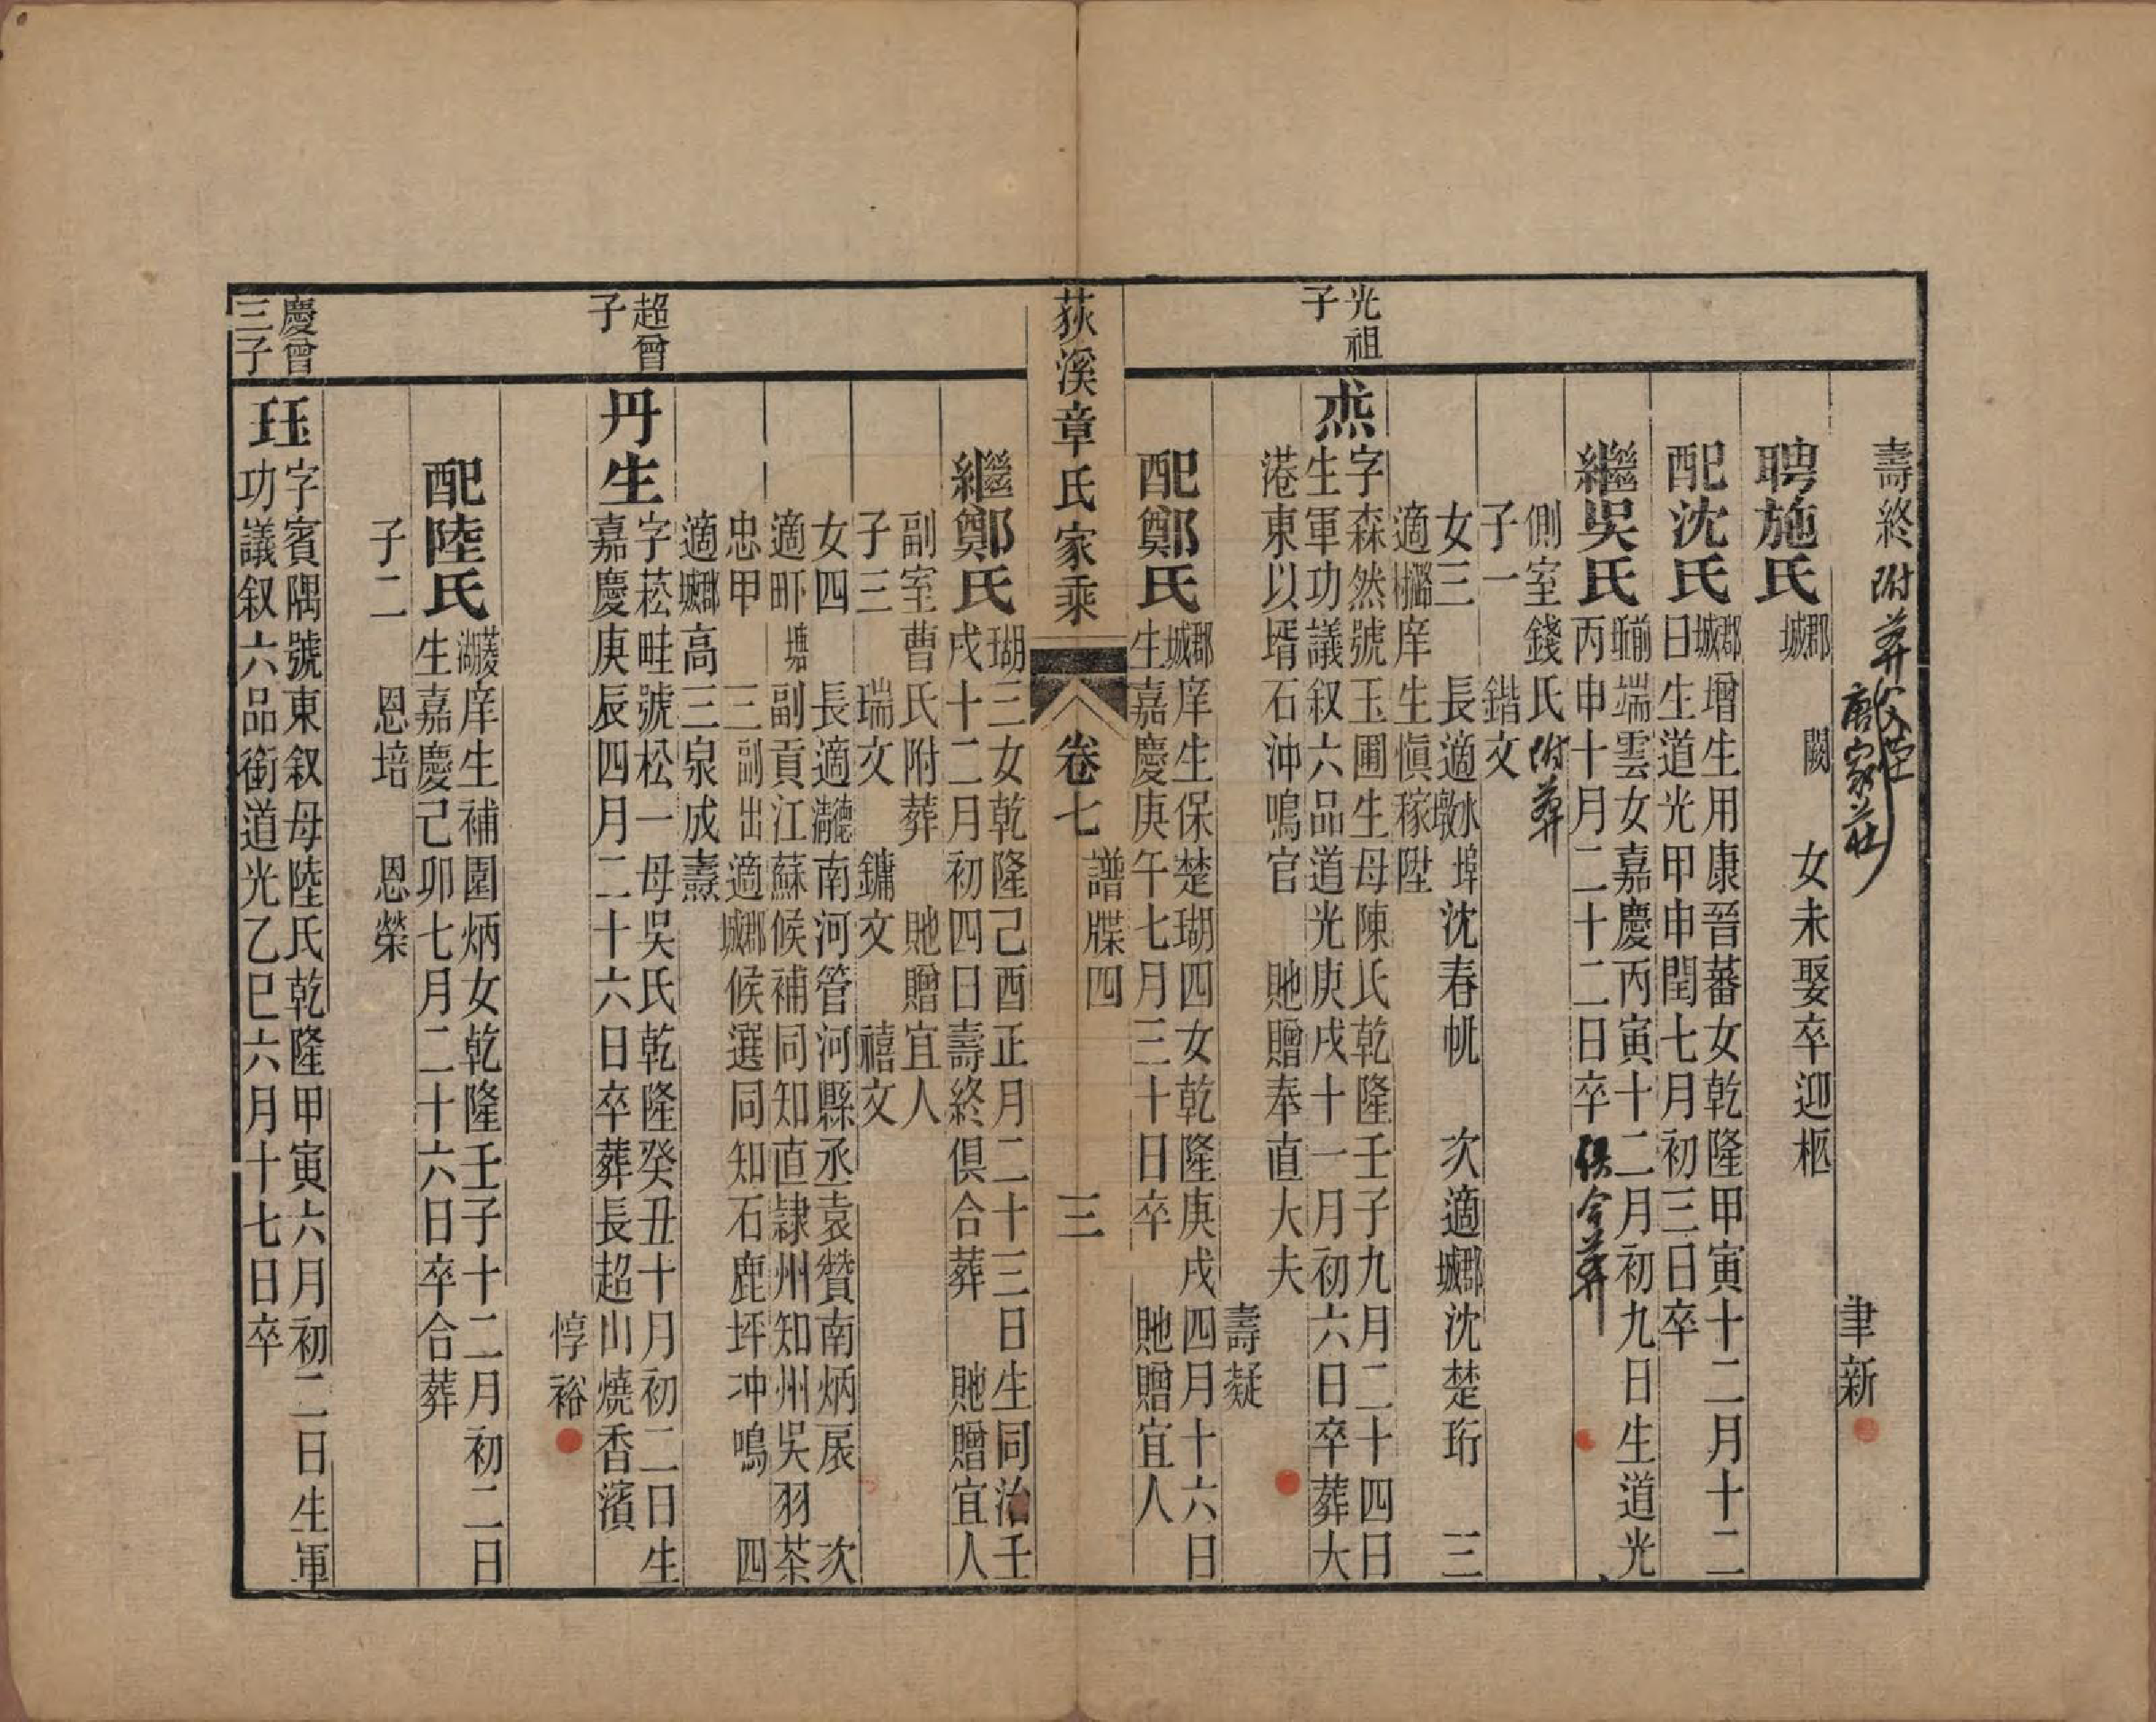 壽終附葬父塋
唐家莊
聿新
聘施氏
郡城
闕
女未娶卒迎柩
配沈氏
郡城增生用康晉蕃女乾隆甲寅十二月十二
日生道光甲申閏七月初三日卒
繼吳氏
端雲女嘉慶丙寅十二月初九日生道光
丙申十月二十二日卒俱合葬
側室錢氏附葬
子一
鍇文
女三
長適水墩埠沈春帆
次適郡城沈楚珩
三
適庠生慎稼陞
光祖
子
焘
字森然號玉圃生母陳氏乾隆壬子九月二十四日
生軍功議叙六品道光庚戌十一月初六日卒葬大
港東以壻石沖鳴官
貤贈奉直大夫
壽凝
配鄭氏
郡城庠生保楚瑚四女乾隆庚戌四月十六日
生嘉慶庚午七月三十日卒
貤贈宜人
荻溪章氏家乘
卷七
譜牒四
三
繼鄭氏
瑚三女乾隆己酉正月二十三日生同治壬
戌十二月初四日壽終俱合葬
貤贈宜人
副室曹氏附葬
貤贈宜人
子三
瑞文
鏞文
禧文
女四
長適德清南河管河縣丞袁贊南炳扆
次
適塘副貢江蘇候補同知直隸州知州吳羽茶
忠甲
三副出適郡城候選同知石鹿坪沖鳴
四
適郡城高三泉成燾
超曾
子
丹生
字菘畦號松一母吳氏乾隆癸丑十月初二日生
嘉慶庚辰四月二十六日卒葬長超山燒香濱
惇裕
配陸氏
菱湖庠生補園炳女乾隆壬子十二月初二日
生嘉慶己卯七月二十六日卒合葬
子二
恩培
恩榮
慶曾
三子
珏
字賓隅號東叙母陸氏乾隆甲寅六月初二日生軍
功議叙六品銜道光乙巳六月十七日卒